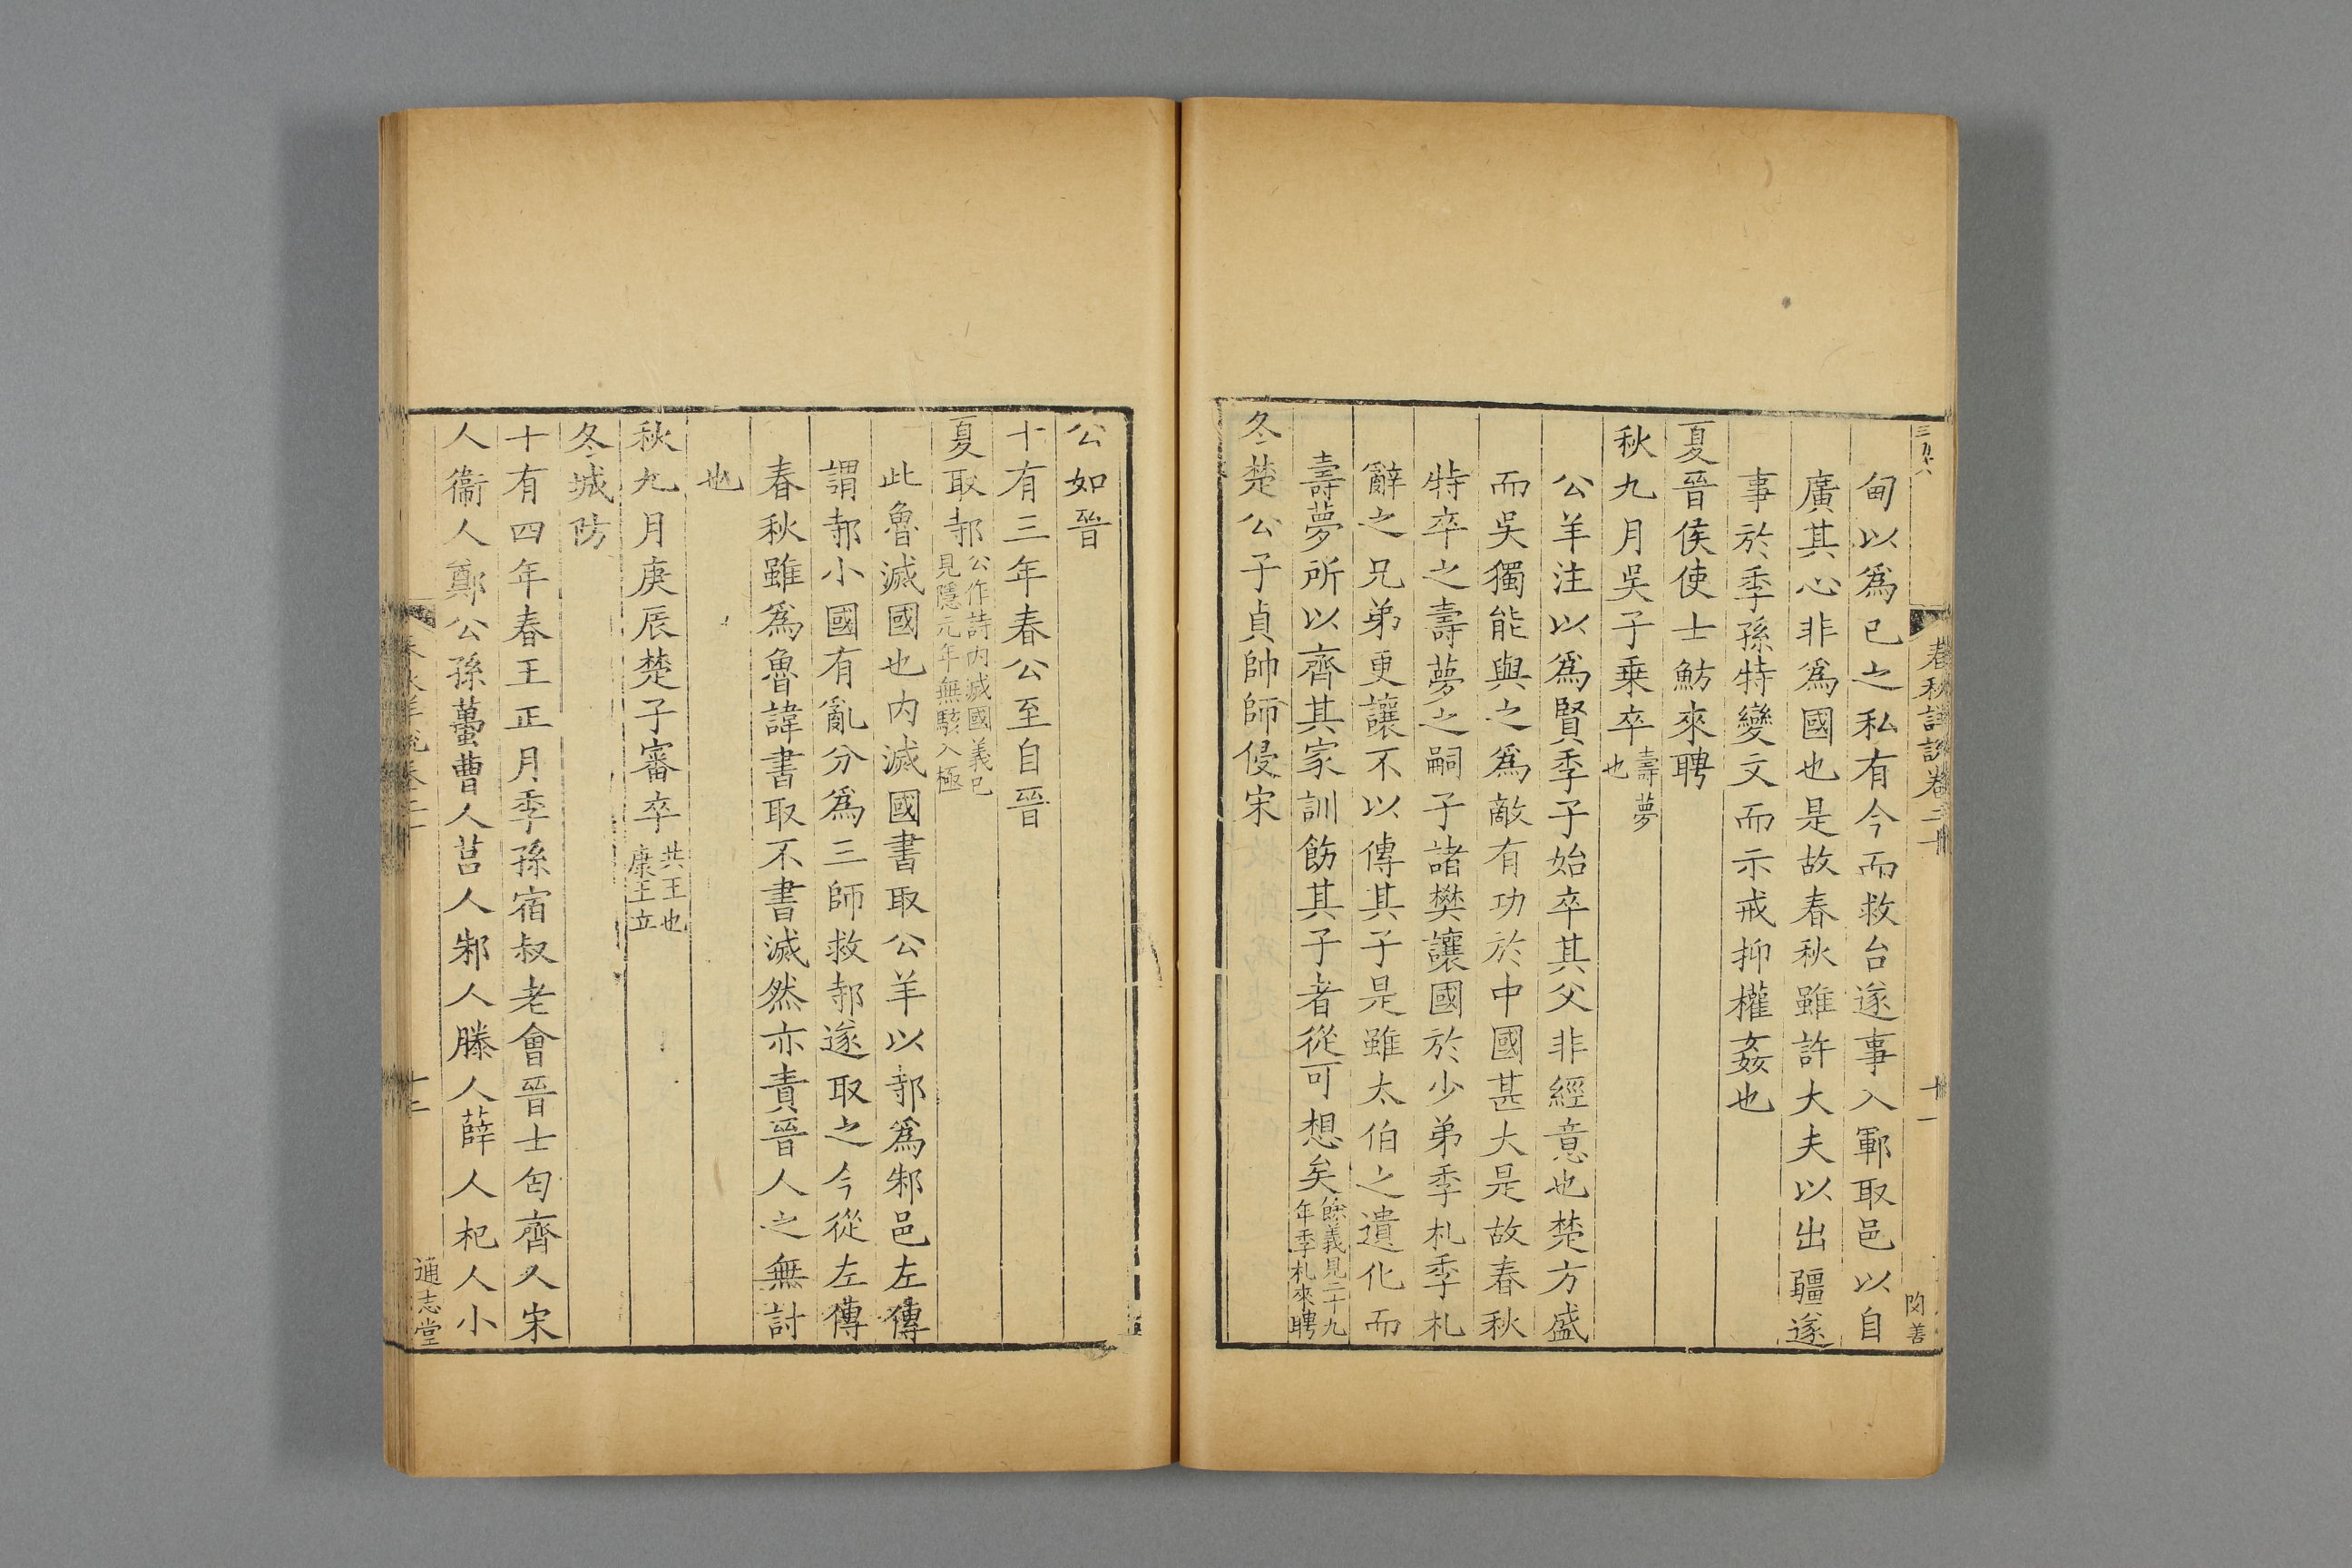 春秋詳說卷二十
十一
甸以爲已之私有今而救台遂事入鄆取邑以自
廣其心非爲國也是故春秋雖許大夫以出疆遂
事於季孫特變文而示戒抑權姦也
夏晉侯使士魴來聘
秋九月吳子乗卒壽夢也
公羊注以爲賢季子始卒其父非經意也楚方盛
而吳獨能與之爲敵有功於中國甚大是故春秋
特卒之壽夢之嗣子諸樊讓國於少弟季札季札
辭之兄弟更讓不以傳其子是雖太伯之遺化而
壽夢所以齊其家訓飭其子者從可想矣餘義見二十九年季札來聘
冬楚公子貞帥師侵宋
公如晉
十有三年春公至自晉
夏取邿公作詩内滅國義已見隱元年無駭入極
此魯滅國也内滅國書取公羊以邿爲邾邑左傳
謂邿小國有亂分爲三師救邿遂取之今從左傳
春秋雖爲魯諱書取不書滅然亦責晉人之無討
也
秋九月庚辰楚子審卒共王也康王立
冬城防
十有四年春王正月季孫宿叔老會晉士匄齊人宋
人衞人鄭公孫蠆曹人莒人邾人滕人薛人杞人小
通志堂